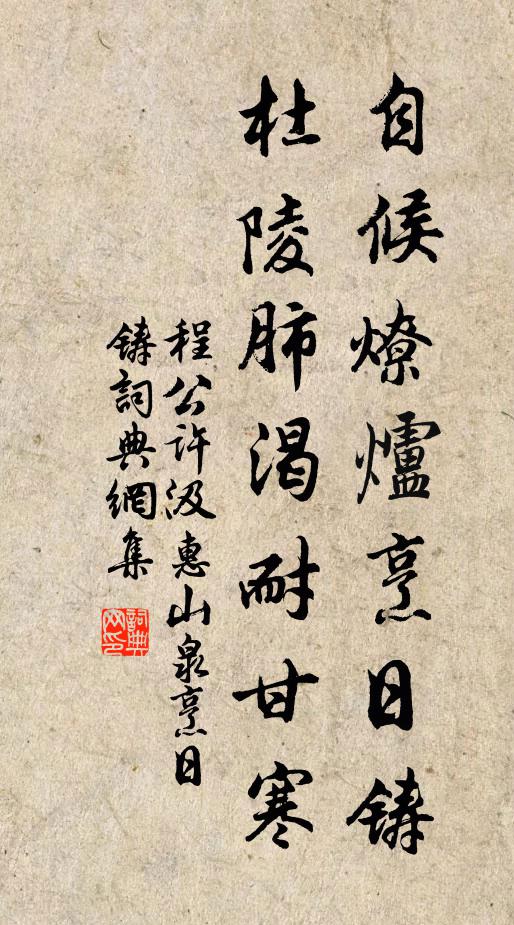 自候燎爐烹日鑄
杜陵肺渴耐甘寒
程公許汲惠山泉烹日
鑄詞典網集
詞典
网印